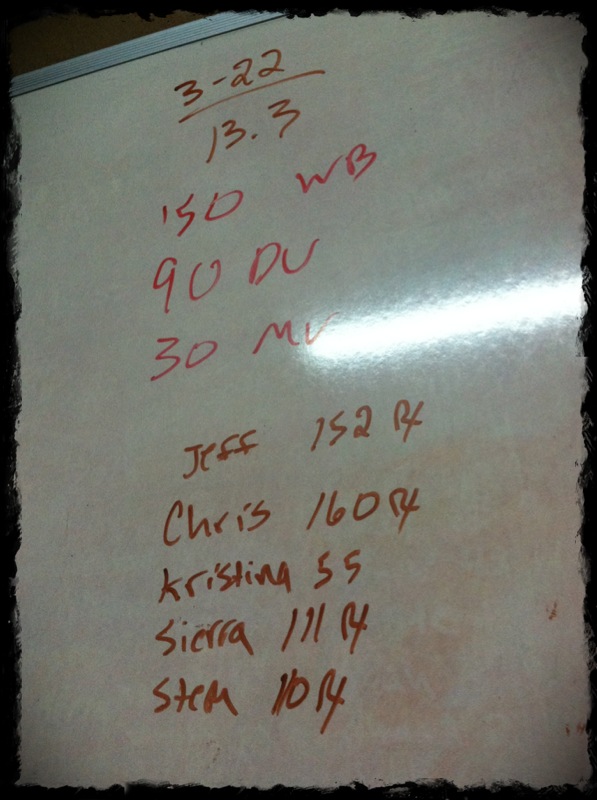 3-22
13.3
150 WB
90 DU
30 MU
Jeff 152 RX
Chris 160 RX
Kristina 55
Sierra 111 RX
110 RX